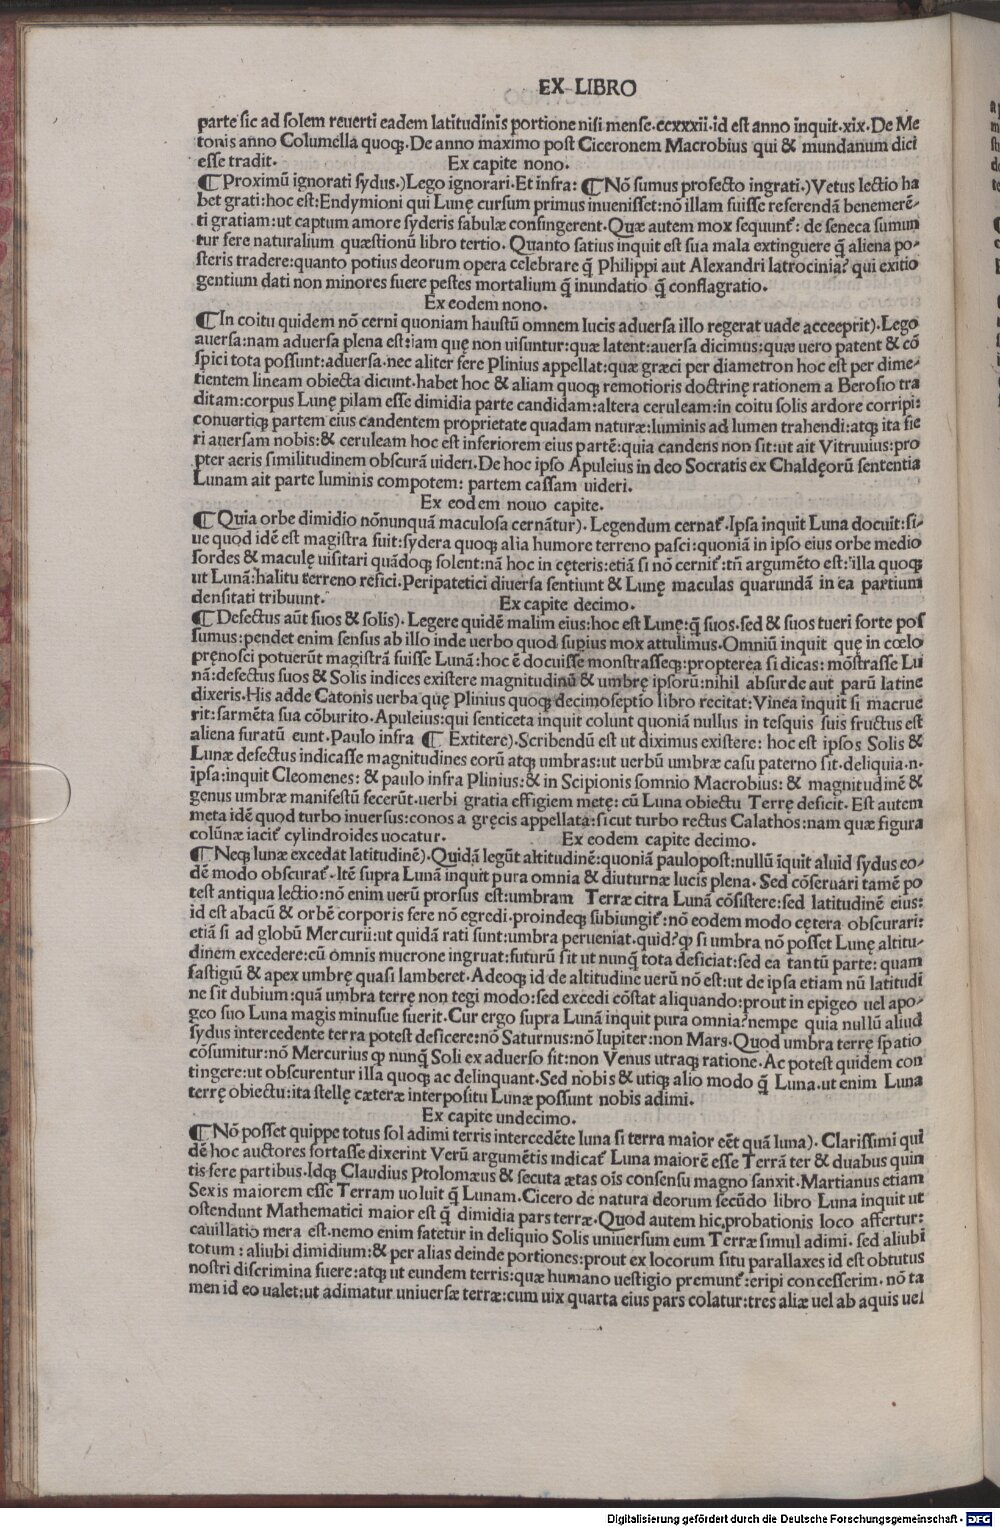 EX LIBRO
parte sic ad solem reuerti eadem latitudinis portione nisi mense.ccxxxii.id est anno inquit.xix.De Me
tonis anno Columella quoqꝫ.De anno maximo post Ciceronem Macrobius qui & mundanum dici
esse tradit. Ex capite nono.
¶Proximū ignorati sydus.)Lego ignorari.Et infra: ¶Nō sumus profecto ingrati.)Vetus lectio ha
bet grati:hoc est:Endymioni qui Lunę cursum primus inuenisset:nō illam fuisse referendā benemerē-
ti gratiam:ut captum amore syderis fabulæ confingerent.Quæ autem mox sequunt᷑: de seneca sumun
tur fere naturalium quæstionū libro tertio. Quanto satius inquit est sua mala extinguere q̄ aliena po-
steris tradere:quanto potius deorum opera celebrare q̄ Philippi aut Alexandri latrocinia? qui exitio
gentium dati non minores fuere pestes mortalium q̄ inundatio q̄ conflagratio.
Ex eodem nono.
¶In coitu quidem nō cerni quoniam haustū omnem lucis aduersa illo regerat uade acceeprit).Lego
auersa:nam aduersa plena est:iam quę non uisuntur:quæ latent:auersa dicimus:quæ uero patent & cō
spici tota possunt:aduersa.nec aliter fere Plinius appellat:quæ græci per diametron hoc est per dime-
tientem lineam obiecta dicunt.habet hoc & aliam quoqꝫ remotioris doctrinę rationem a Beroso tra
ditam:corpus Lunę pilam esse dimidia parte candidam:altera ceruleam:in coitu solis ardore corripi:
conuertiqꝫ partem eius candentem proprietate quadam naturæ:luminis ad lumen trahendi:atqꝫ ita fie
ri auersam nobis:& ceruleam hoc est inferiorem eius partē:quia candens non sit:ut ait Vitruuius:pro
pter aeris similitudinem obscurā uideri.De hoc ipso Apuleius in deo Socratis ex Chaldęorū sententia
Lunam ait parte luminis compotem: partem cassam uideri.
Ex eodem nouo capite.
¶Quia orbe dimidio nōnunquā maculosa cernātur). Legendum cernat᷑.Ipsa inquit Luna docuit:si-
ue quod idē est magistra fuit:sydera quoqꝫ alia humore terreno pasci:quoniā in ipso eius orbe medio
sordes & maculę uisitari quādoqꝫ solent:nā hoc in cęteris:etiā si nō cernit᷑:tn̄ argumēto est:illa quoqꝫ
ut Lunā:halitu terreno refici.Peripatetici diuersa sentiunt & Lunę maculas quarundā in ea partium
densitati tribuunt. Ex capite decimo.
¶Defectus aūt suos & solis). Legere quidē malim eius:hoc est Lunę:q̄ suos.sed & suos tueri forte pos
sumus:pendet enim sensus ab illo inde uerbo quod supius mox attulimus.Omniū inquit quę in cœlo
pręnosci potuerūt magistrā fuisse Lunā:hoc ē docuisse monstrasseqꝫ:propterea si dicas: mōstrasse Lu
nā:defectus suos & Solis indices existere magnitudinū & umbrę ipsorū:nihil absurde aut parū latine
dixeris.His adde Catonis uerba quę Plinius quoqꝫ decimoseptio libro recitat:Vinea inquit si macrue
rit:sarmēta sua cōburito.Apuleius:qui senticeta inquit colunt quoniā nullus in tesquis suis fructus est
aliena furatū eunt.Paulo infra ¶ Extitere).Scribendū est ut diximus existere: hoc est ipsos Solis &
Lunæ defectus indicasse magnitudines eorū atqꝫ umbras:ut uerbū umbræ casu paterno sit.deliquia.n.
ipsa:inquit Cleomenes: & paulo infra Plinius:& in Scipionis somnio Macrobius: & magnitudinē &
genus umbræ manifestū fecerūt.uerbi gratia effigiem metę: cū Luna obiectu Terrę deficit. Est autem
meta idē quod turbo inuersus:conos a gręcis appellata:sicut turbo rectus Calathos:nam quæ figura
colūnæ iacit᷑ cylindroides uocatur. Ex eodem capite decimo.
¶Neqꝫ lunæ excedat latitudinē).Quidā legūt altitudinē:quoniā paulopost:nullū īquit aluid sydus eo-
dē modo obscurat᷑.Itē supra Lunā inquit pura omnia & diuturnæ lucis plena. Sed cōseruari tamē po
test antiqua lectio:nō enim uerū prorsus est:umbram Terræ citra Lunā cōsistere:sed latitudinē eius:
id est abacū & orbē corporis fere nō egredi.proindeqꝫ subiungit᷑:nō eodem modo cętera obscurari:
etiā si ad globū Mercurii:ut quidā rati sunt:umbra perueniat.quid?ꝙ si umbra nō posset Lunę altitu-
dinem excedere:cū omnis mucrone ingruat:futurū sit ut nunq̄ tota deficiat:sed ea tantū parte: quam
fastigiū & apex umbrę quasi lamberet.Adeoqꝫ id de altitudine uerū nō est:ut de ipsa etiam nū latitudi
ne sit dubium:quā umbra terrę non tegi modo:sed excedi cōstat aliquando:prout in epigeo uel apo-
geo suo Luna magis minusue fuerit.Cur ergo supra Lunā inquit pura omnia?nempe quia nullū aliud
sydus intercedente terra potest deficere:nō Saturnus:nō Iupiter:non Mars.Quod umbra terrę spatio
cōsumitur:nō Mercurius ꝙ nunq̄ Soli ex aduerso sit:non Venus utraqꝫ ratione.Ac potest quidem con
tingere:ut obscurentur illa quoqꝫ ac delinquant.Sed nobis & utiqꝫ alio modo q̄ Luna.ut enim Luna
terrę obiectu:ita stellę cæteræ interpositu Lunæ possunt nobis adimi.
Ex capite undecimo.
¶Nō posset quippe totus sol adimi terris intercedēte luna si terra maior eēt quā luna). Clarissimi qui
dē hoc auctores fortasse dixerint Verū argumētis indicat᷑ Luna maiorē esse Terrā ter & duabus quin
tis fere partibus.Idqꝫ Claudius Ptolomæus & secuta ætas oīs consensu magno sanxit.Martianus etiam
Sexis maiorem esse Terram uoluit q̄ Lunam.Cicero de natura deorum secūdo libro Luna inquit ut
ostendunt Mathematici maior est q̄ dimidia pars terræ.Quod autem hic probationis loco affertur:
cauillatio mera est.nemo enim fatetur in deliquio Solis uniuersum eum Terræ simul adimi. sed aliubi
totum: aliubi dimidium:& per alias deinde portiones:prout ex locorum situ parallaxes id est obtutus
nostri discrimina fuere:atqꝫ ut eundem terris:quæ humano uestigio premunt᷑:eripi concesserim.nō ta
men id eo ualet:ut adimatur uniuersæ terræ:cum uix quarta eius pars colatur:tres aliæ uel ab aquis uel
Digitalisierung gefördert durch die Deutsche Forschungsgemeinschaft - DFG